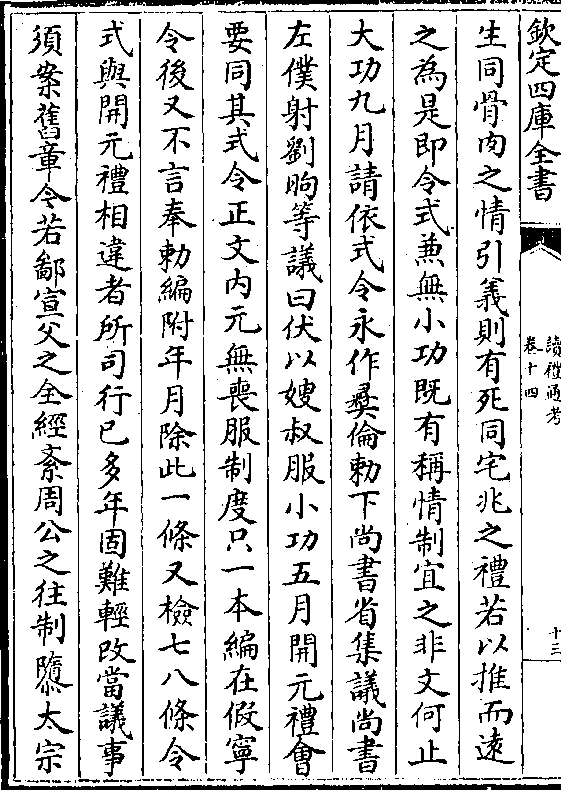 欽定四庫全書
讀禮通考
卷十四
十三
生同骨肉之情引義則有死同宅兆之禮若以推而遠
之為是即令式兼無小功既有稱情制宜之非文何止
大功九月請依式令永作彞倫勅下尚書省集議尚書
左僕射劉昫等議曰伏以嫂叔服小功五月開元禮會
要同其式令正文內元無喪服制度只一本編在假寧
令後又不言奉勅編附年月除此一條又檢七八條令
式與開元禮相違者所司行已多年固難輕改當議事
須案舊章令若鄙宣父之全經紊周公之往制隳太宗